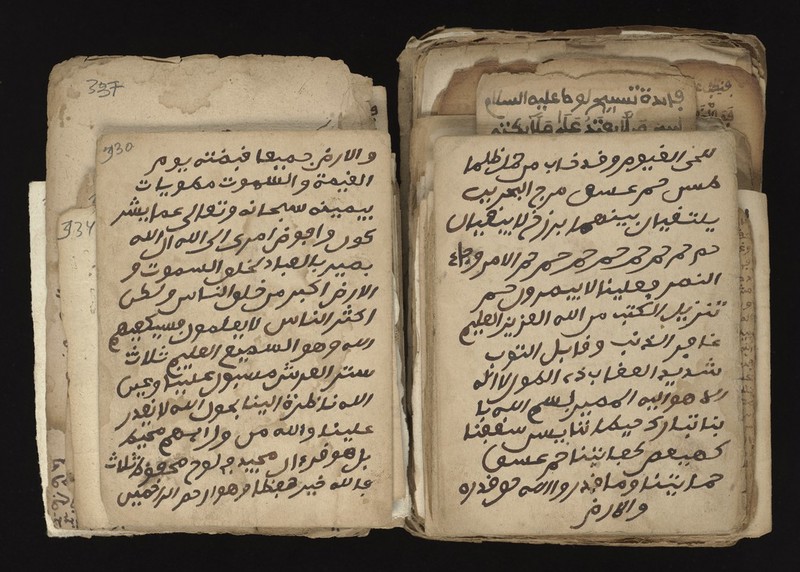 فايدة تسبيح لوحا عليه السلام
للحى القيوم وقد خاب من حمل ظلما
طس حم عسق مرج البحرين
يلتقيان بينهما برزخ لا يبغيان
حم حم حم حم حم حم حم الامر وجاء
النصر فعلينا لا ينصرون حم
تنزيل الكتب من الله العزيز العليم
غافر الذنب وقابل التوب
شديد العقاب ذى الطول لا اله
الا هو اليه المصير بسم الله با
بنا تبارك حيطاننا يس سقفنا
كهيعص كفايتنا حم عسق
حمايتنا وما قدروا الله حق قدره
والارض
337
930
934
والارض جميعا قبضته يوم
القيمة والسموت مطويات
بيمينه سبحانه وتعالى عما يشر
كون وافوض امرى الى الله ان الله
بصير بالعباد لخلق السموت و
الارض اكبر من خلق الناس ولكن
اكثر الناس لا يعلمون فسيكفيكهم
الله وهو السميع العليم ثلاث
ستر العرش مسبول علينا وعين
الله ناظرة الينا بحول الله لا يقدر
علينا والله من ورايهم محيط
بل هو قرءان مجيد في لوح محفوظ ثلاث
فالله خير حفظا وهو ارحم الرحمين